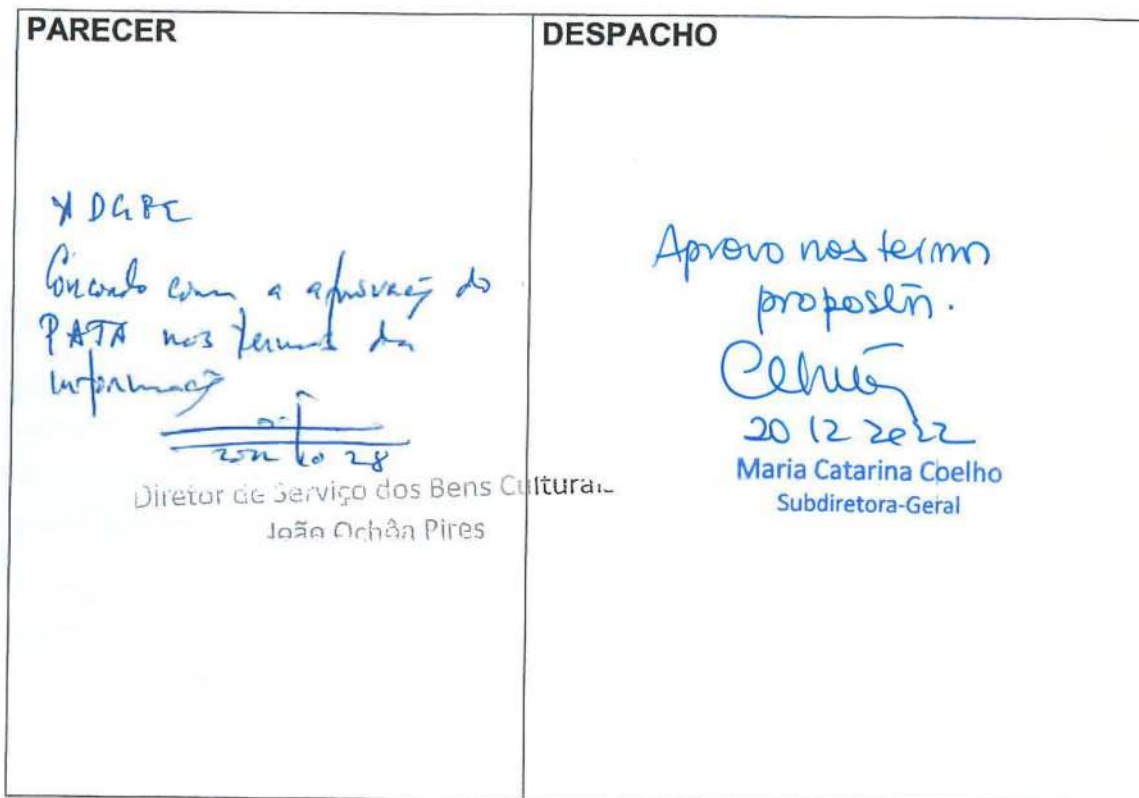 PARECER
À DGPC
Concordo com a aprovação do
PATA nos termos da
informação
2022 10 28
Diretor de Serviço dos Bens Culturais
João Ochôa Pires
DESPACHO
Aprovo nos termos
propostos.
20 12 2022
Maria Catarina Coelho
Subdiretora-Geral